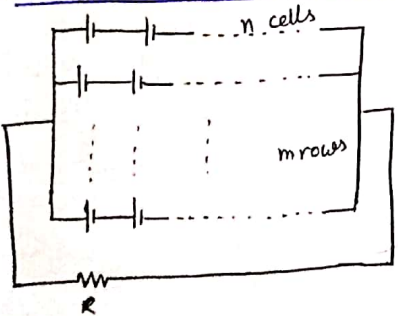 n cells
m rows
R